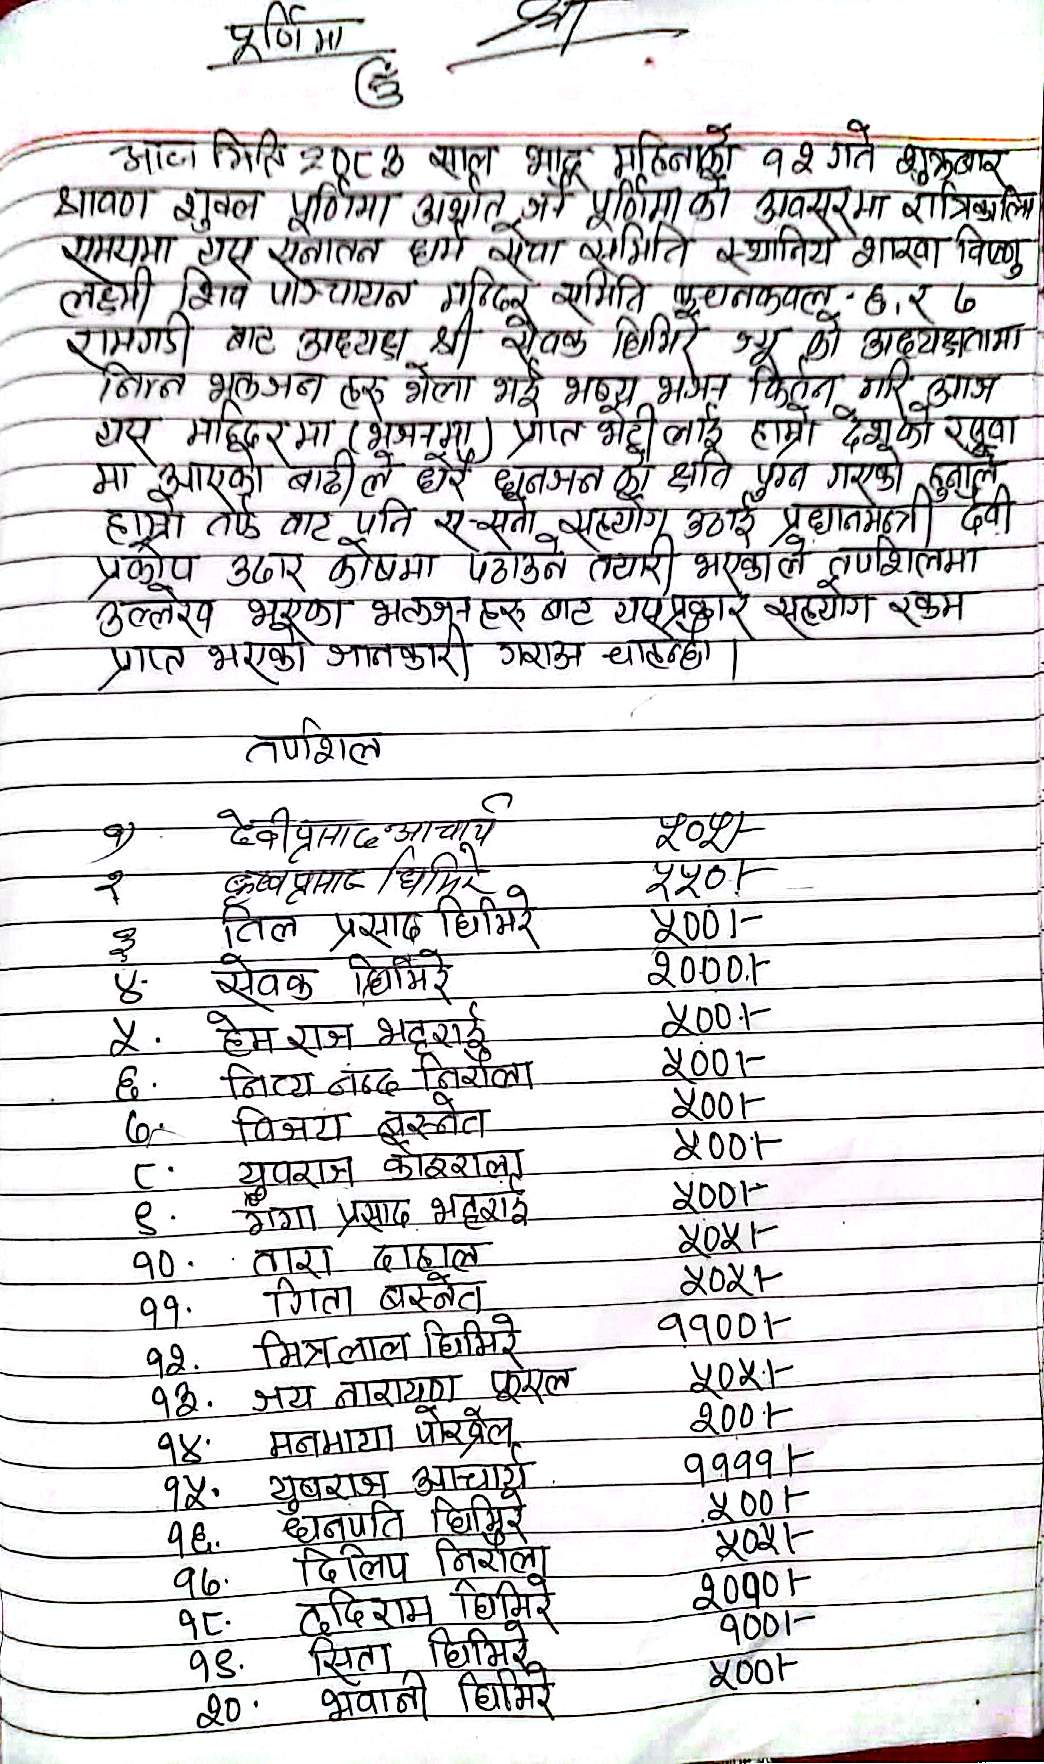 पूर्णिमा श्री
ॐ
आज मिति २०८३ साल भाद्र महिनाको १२ गते शुक्रबार
श्रावण शुक्ल पूर्णिमा अर्थात् जनै पूर्णिमाको अवसरमा रात्रिकालिन
समयमा यस सनातन धर्म सेवा समिति स्थानिय शाखा विष्णु
लक्ष्मी शिव पञ्चायन मन्दिर समिति बुधनकवलपुर-६, र ७
रामगडी बाट अध्यक्ष श्री सेवक घिमिरे ज्यू को अध्यक्षतामा
निम्न भक्तजन हरु भेला भई भब्य भजन किर्तन गरि आज
यस मन्दिरमा (भजनमा) प्राप्त भेटी लाई हाम्रो देशको रसुवा
मा आएको बाढी ले धेरै धनजन को क्षति पुग्न गएको हुनाले
हाम्रो तर्फ बाट प्रति स-सतो सहयोग उठाई प्रधानमन्त्री देवी
प्रकोप उद्दार कोषमा पठाउने तयारी भएकाले तपशिलमा
उल्लेख भएका भक्तजन हरु बाट यसप्रकार सहयोग रकम
प्राप्त भएको जानकारी गराउन चाहन्छौ।
तपशिल
१) देबीप्रसाद आचार्य ५०५।-
२ कृष्णप्रसाद घिमिरे ५५०।-
३ तिल प्रसाद घिमिरे ५००।-
४. सेवक घिमिरे २०००।-
५. हेम राज भट्टराई ५००।-
६. नित्य नंन्द निरौला ५००।-
७. विजय बस्नेत ५००।-
८. युवराज कोइराला ५००।-
९. गंगा प्रसाद भट्टराई ५००।-
१०. तारा दाहाल ५०५।-
११. गिता बस्नेत ५०५।-
१२. मित्रलाल घिमिरे ११००।-
१३. जय नारायण फूएल ५०५।-
१४. मनमाया पोख्रेल २००।-
१५. युबराज आचार्य ११११।-
१६. धनपति घिमिरे ५००।-
१७. दिलिप निरौला ५०५।-
१८. ददिराम घिमिरे २०१०।-
१९. सिता घिमिरे १००।-
२०. भवानी घिमिरे ५००।-